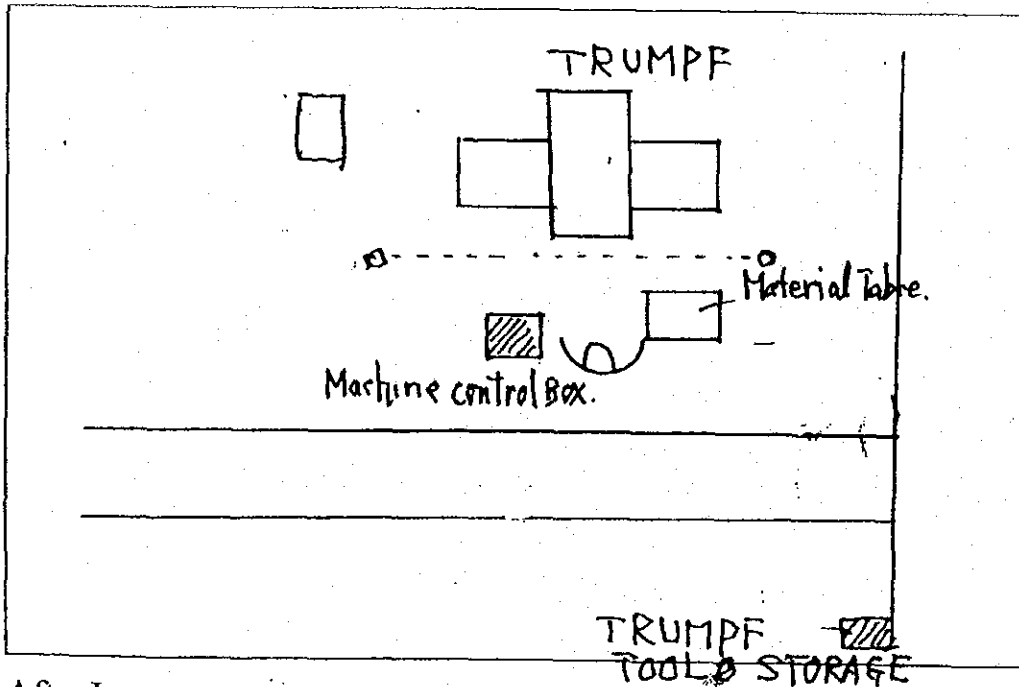 TRUMPF
Material Table.
Machine control Box.
TRUMPF
TOOL STORAGE